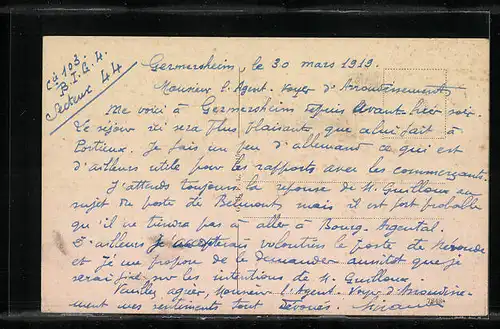 Cie 103.
B. I. G. 4.
Secteur 44
Germersheim le 30 mars 1919.
Monsieur l'Agent-Voyer d'Arrondissement
Me voici à Germersheim depuis avant-hier soir.
Le séjour ici sera plus plaisant que celui fait à
Portieux. Je fais un peu d'allemand ce qui est
d'ailleurs utile pour les rapports avec les commerçants.
J'attends toujours la réponse de M. Guilloux au
sujet du poste de Belmont, mais il est fort probable
qu'il ne tiendra pas à aller à Bourg-Argental.
D'ailleurs je accepterais volontiers le poste de
et je me propose de le demander aussitôt que je
serai fixé sur les intentions de M. Guilloux.
Veuillez agréer, Monsieur l'Agent-Voyer d'Arrondisse-
ment mes sentiments tout dévoués.